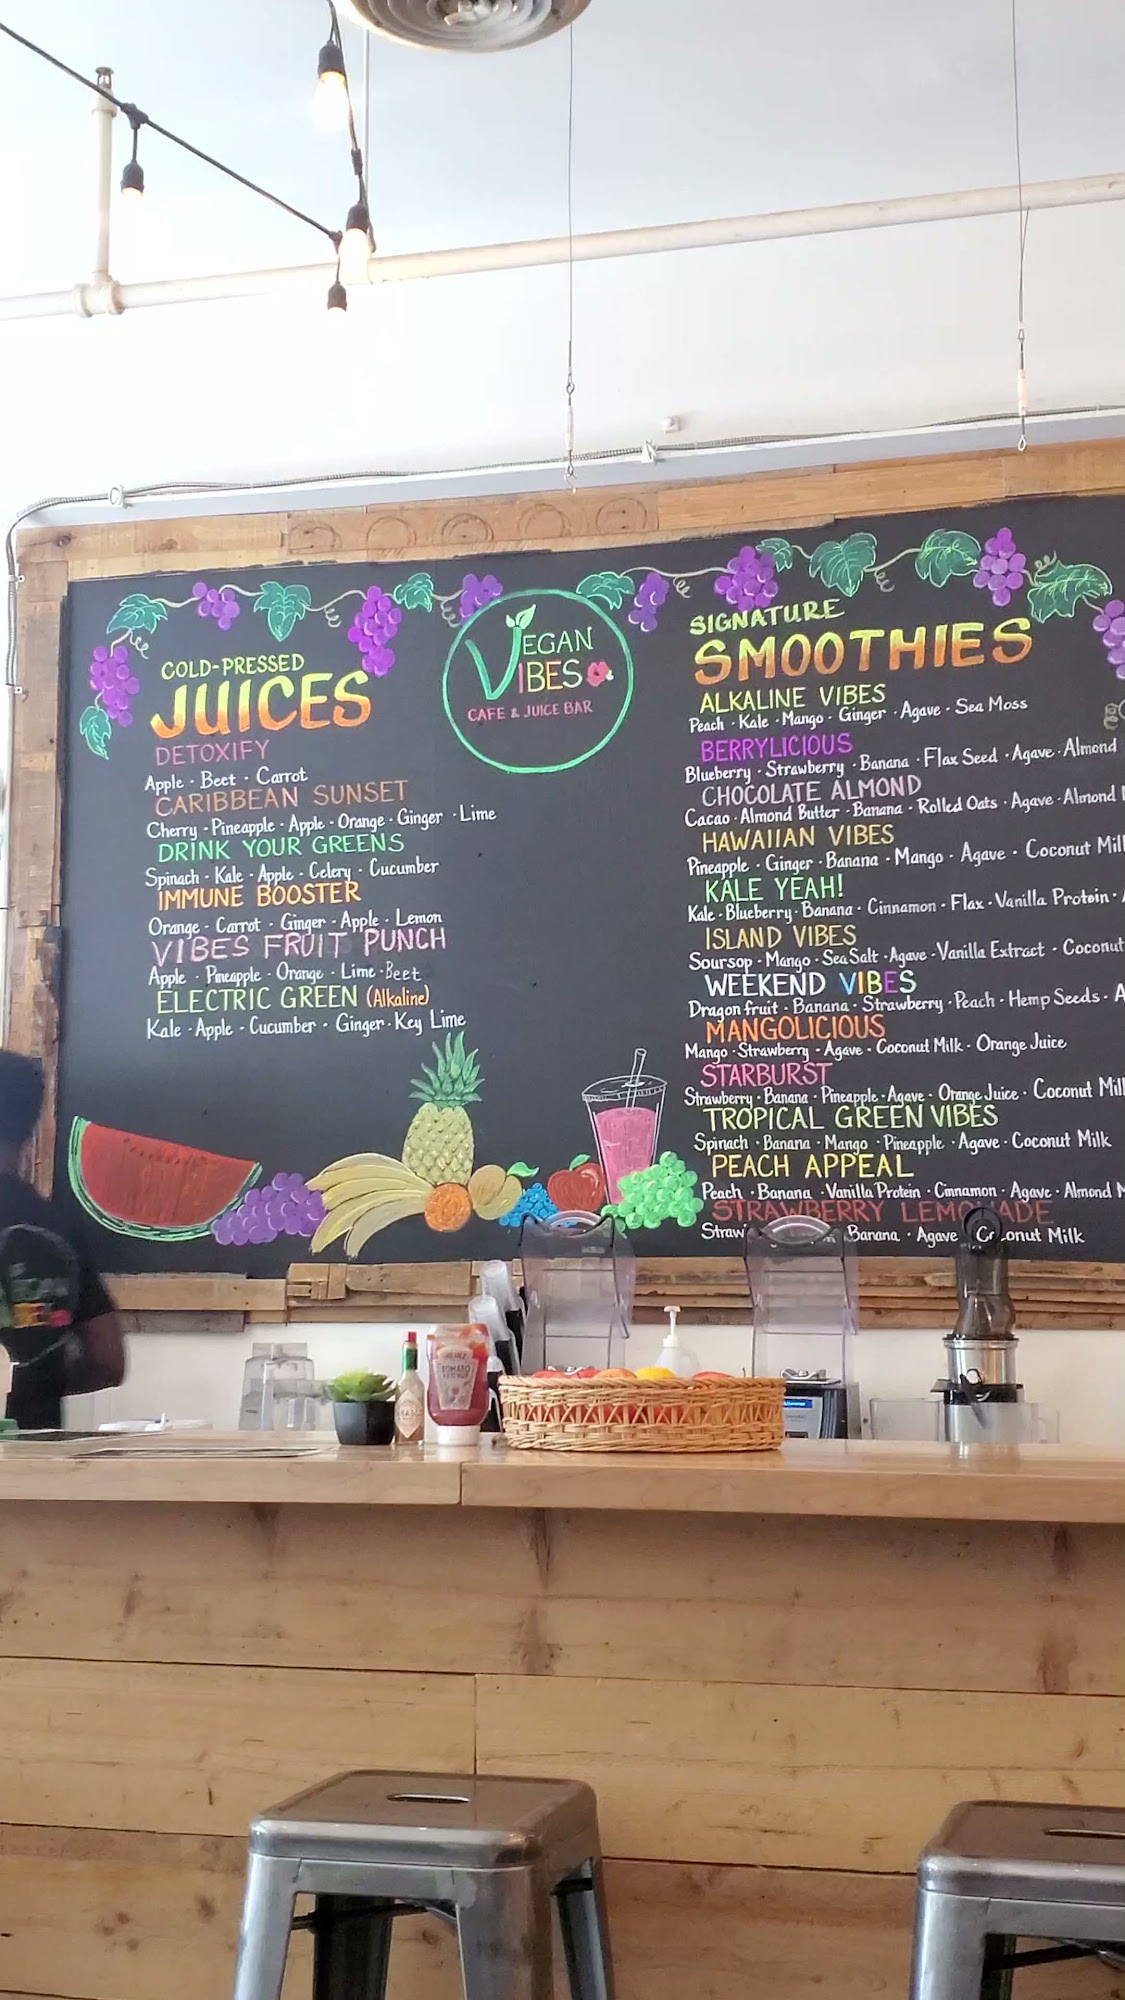 COLD-PRESSED
JUICES
DETOXIFY
Apple · Beet · Carrot
CARIBBEAN SUNSET
Cherry · Pineapple · Apple · Orange · Ginger · Lime
DRINK YOUR GREENS
Spinach · Kale · Apple · Celery · Cucumber
IMMUNE BOOSTER
Orange · Carrot · Ginger · Apple · Lemon
VIBES FRUIT PUNCH
Apple · Pineapple · Orange · Lime · Beet
ELECTRIC GREEN (Alkaline)
Kale · Apple · Cucumber · Ginger · Key Lime
VEGAN
VIBES
CAFE & JUICE BAR
SIGNATURE
SMOOTHIES
ALKALINE VIBES
Peach · Kale · Mango · Ginger · Agave · Sea Moss
BERRYLICIOUS
Blueberry · Strawberry · Banana · Flax Seed · Agave · Almond
CHOCOLATE ALMOND
Cacao · Almond Butter · Banana · Rolled Oats · Agave · Almond
HAWAIIAN VIBES
Pineapple · Ginger · Banana · Mango · Agave · Coconut Mil
KALE YEAH!
Kale · Blueberry · Banana · Cinnamon · Flax · Vanilla Protein ·
ISLAND VIBES
Soursop · Mango · Sea Salt · Agave · Vanilla Extract · Coconut
WEEKEND VIBES
Dragon fruit · Banana · Strawberry · Peach · Hemp Seeds · A
MANGOLICIOUS
Mango · Strawberry · Agave · Coconut Milk · Orange Juice
STARBURST
Strawberry · Banana · Pineapple · Agave · Orange Juice · Coconut Mil
TROPICAL GREEN VIBES
Spinach · Banana · Mango · Pineapple · Agave · Coconut Milk
PEACH APPEAL
Peach · Banana · Vanilla Protein · Cinnamon · Agave · Almond M
STRAWBERRY LEMONADE
Straw Banana · Agave Coconut Milk
HEINZ
TOMATO
KETCHUP